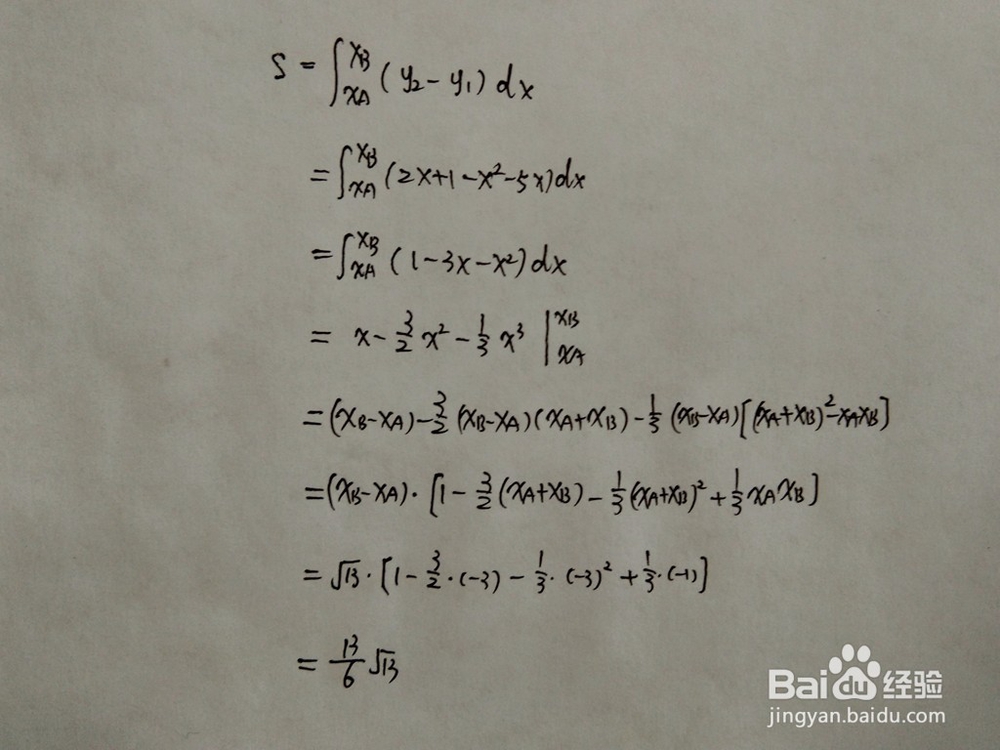 S = ∫_{x_A}^{x_B} (y₂ - y₁) dx
= ∫_{x_A}^{x_B} (2x+1-x²-5x)dx
= ∫_{x_A}^{x_B} (1-3x-x²)dx
= x - 3/2 x² - 1/3 x³ |_{x_A}^{x_B}
= (x_B-x_A) - 3/2 (x_B-x_A)(x_A+x_B) - 1/3 (x_B-x_A)[(x_A+x_B)²-x_Ax_B]
= (x_B-x_A)·[1 - 3/2 (x_A+x_B) - 1/3 (x_A+x_B)² + 1/3 x_A x_B]
= √13·[1 - 3/2·(-3) - 1/3·(-3)² + 1/3·(-1)]
= 13/6 √13
Baidu经验
jingyan.baidu.com